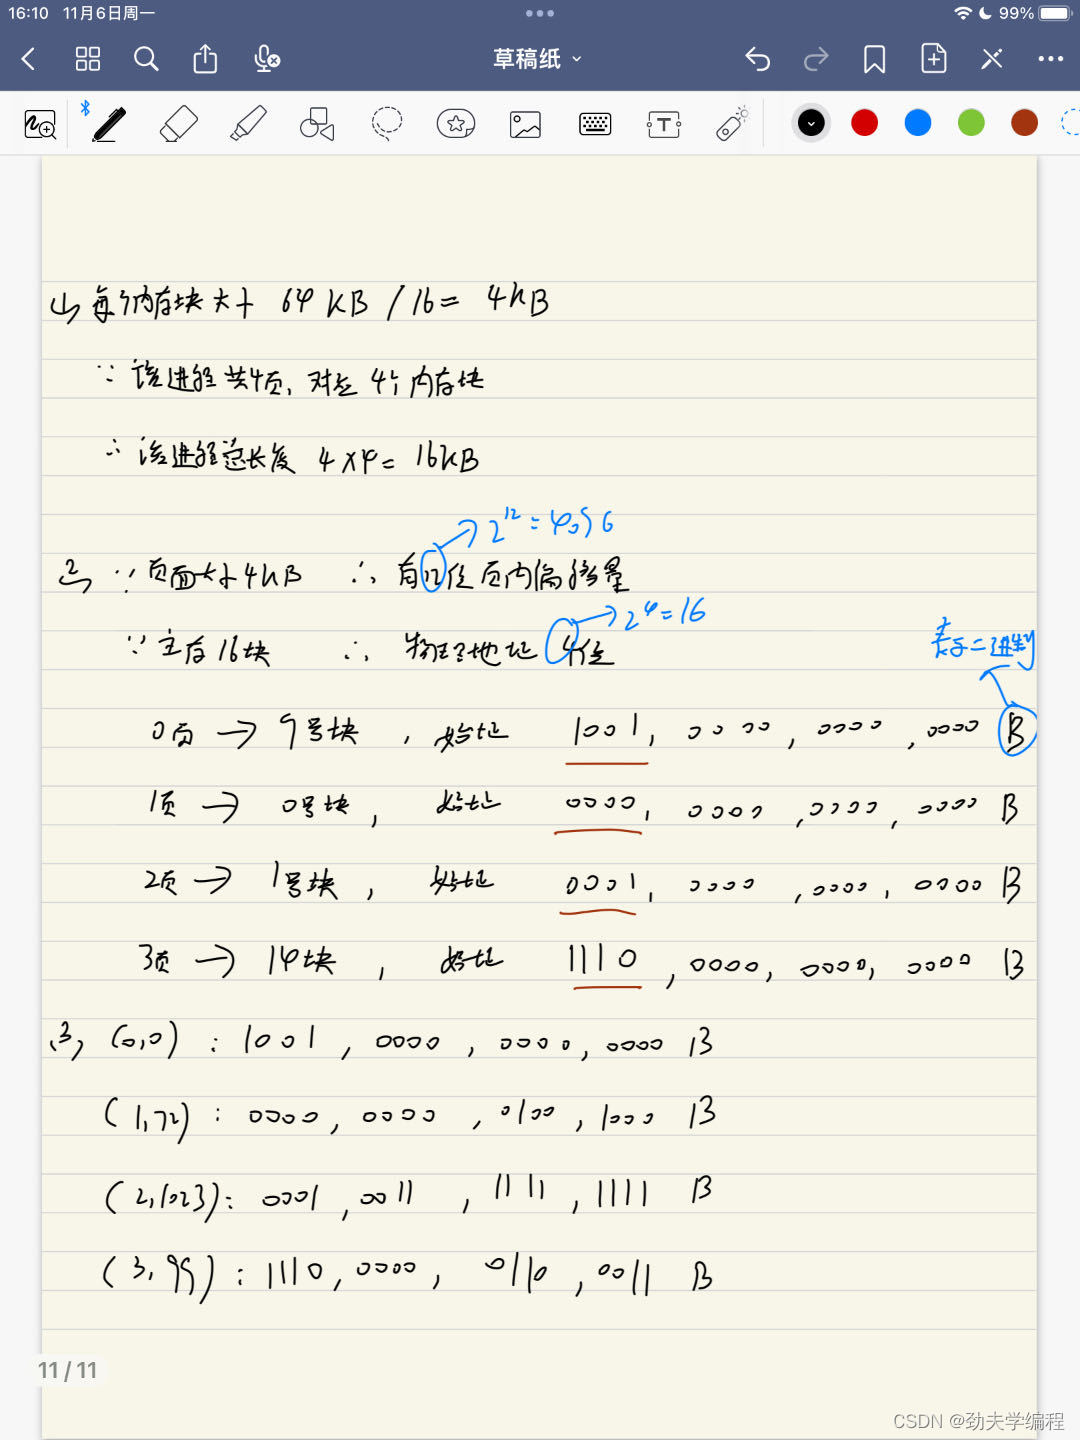 16:10 11月6日周一
99%
草稿纸
(1) 每个内存块大小 64KB / 16 = 4KB
∵ 该进程共4页, 对应 4个内存块
∴ 该进程总长度 4×4 = 16KB
→ 2^12 = 4096
(2) ∵ 页面大小 4KB ∴ 有12位页内偏移量
→ 2^4 = 16
∵ 主存16块 ∴ 物理地址 4位
表示二进制
0页 → 9号块 , 始址 1001, 0000, 0000, 0000 B
1页 → 0号块, 始址 0000, 0000, 0000, 0000 B
2页 → 1号块, 始址 0001, 0000, 0000, 0000 B
3页 → 14块, 始址 1110, 0000, 0000, 0000 B
(3) (0,0) : 1001, 0000, 0000, 0000 B
(1,72) : 0000, 0000, 0100, 1000 B
(2,1023) : 0001, 0011, 1111, 1111 B
(3,99) : 1110, 0000, 0110, 0011 B
11 / 11
CSDN @劲夫学编程